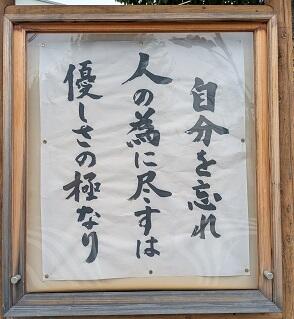 自分を忘れ
人の為に尽すは
優しさの極なり